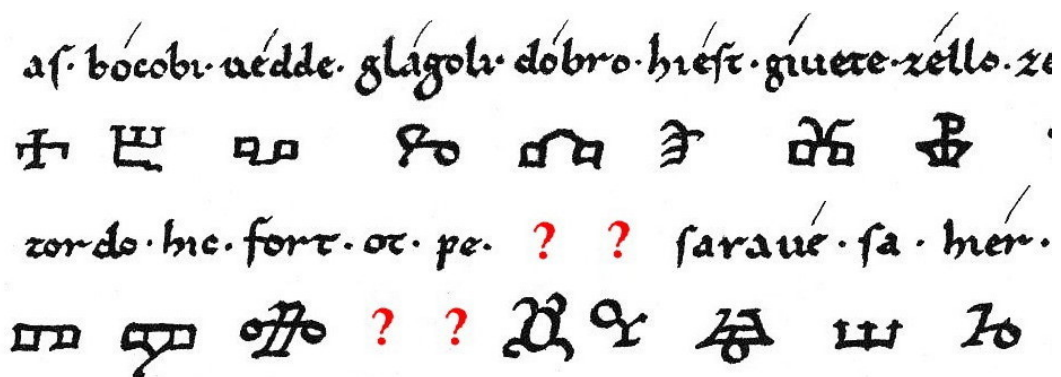 aſ· bócobi· uédde· glágoli· dóbro· hiéſt· gíuete· zéllo· ze
Ⰰ Ⰱ Ⰲ Ⰳ Ⰴ Ⰵ Ⰶ Ⰷ
tordo· hic· fort· ot· pe· ? ? ſaraué· ſa· hiér·
Ⱅ Ⱆ Ⱇ ? ? Ⱒ Ⱌ Ⱍ Ⱎ Ⱐ